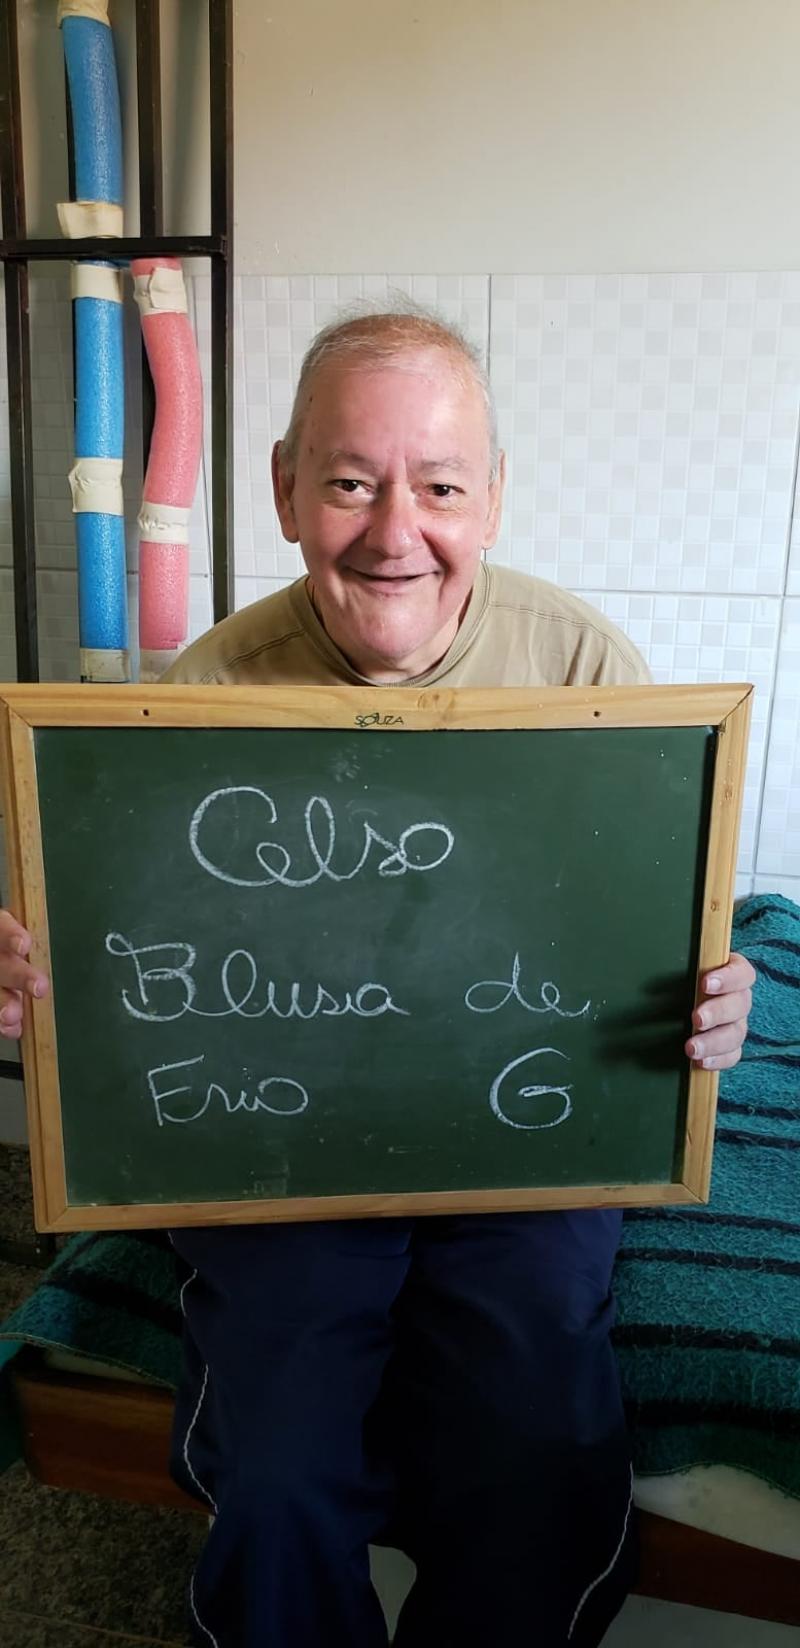 SOUZA
Celso
Blusa de
Frio G